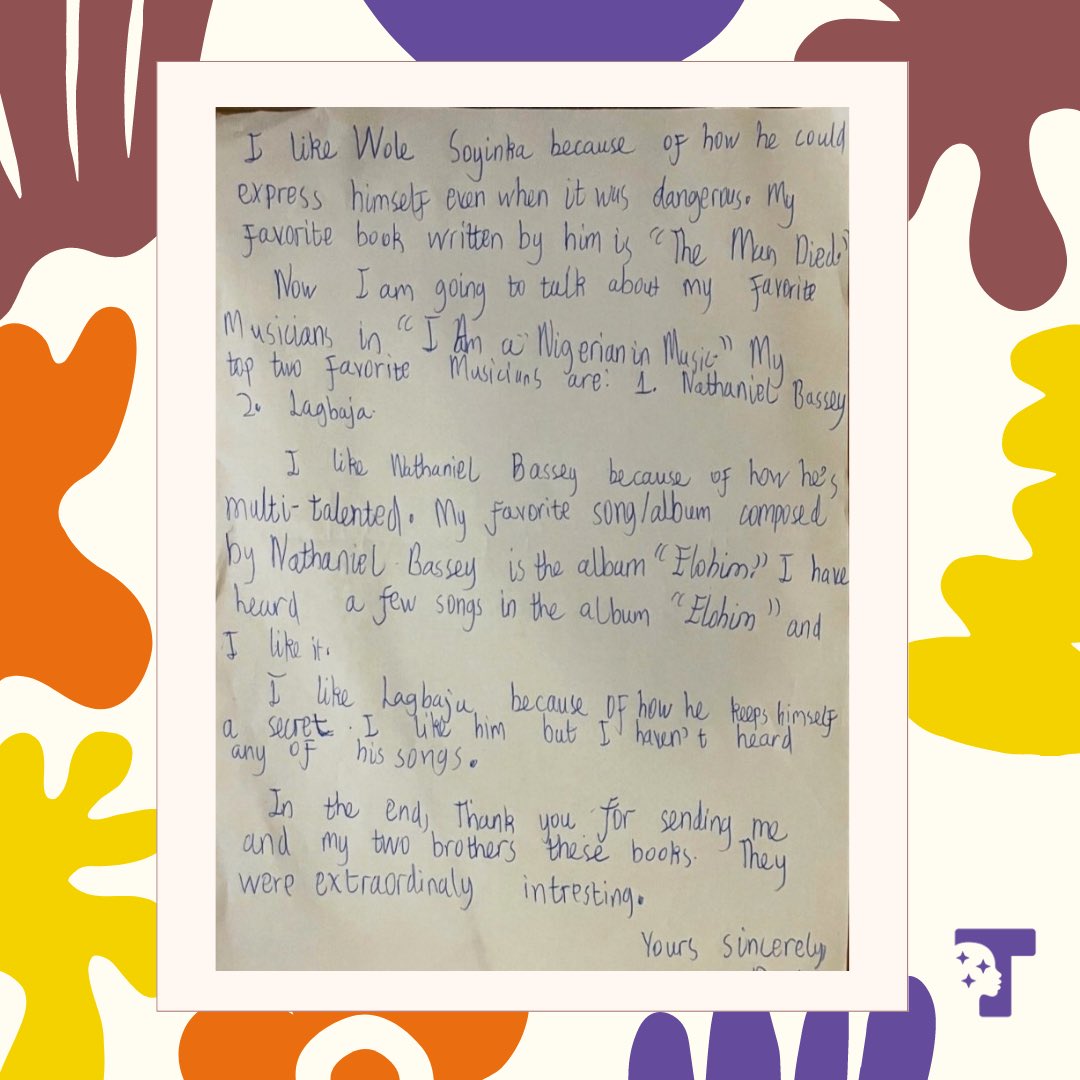 I like Wole Soyinka because of how he could
express himself even when it was dangerous. My
favorite book written by him is "The Man Died."
Now I am going to talk about my favorite
Musicians in "I Am a Nigerian in Music." My
top two favorite Musicians are: 1. Nathaniel Bassey
2. Lagbaja.
I like Nathaniel Bassey because of how he's
multi-talented. My favorite song/album composed
by Nathaniel Bassey is the album "Elohim." I have
heard a few songs in the album "Elohim" and
I like it.
I like Lagbaja because of how he keeps himself
a secret. I like him but I haven't heard
any of his songs.
In the end, Thank you for sending me
and my two brothers these books. They
were extraordinaly intresting.
Yours sincerely,
T